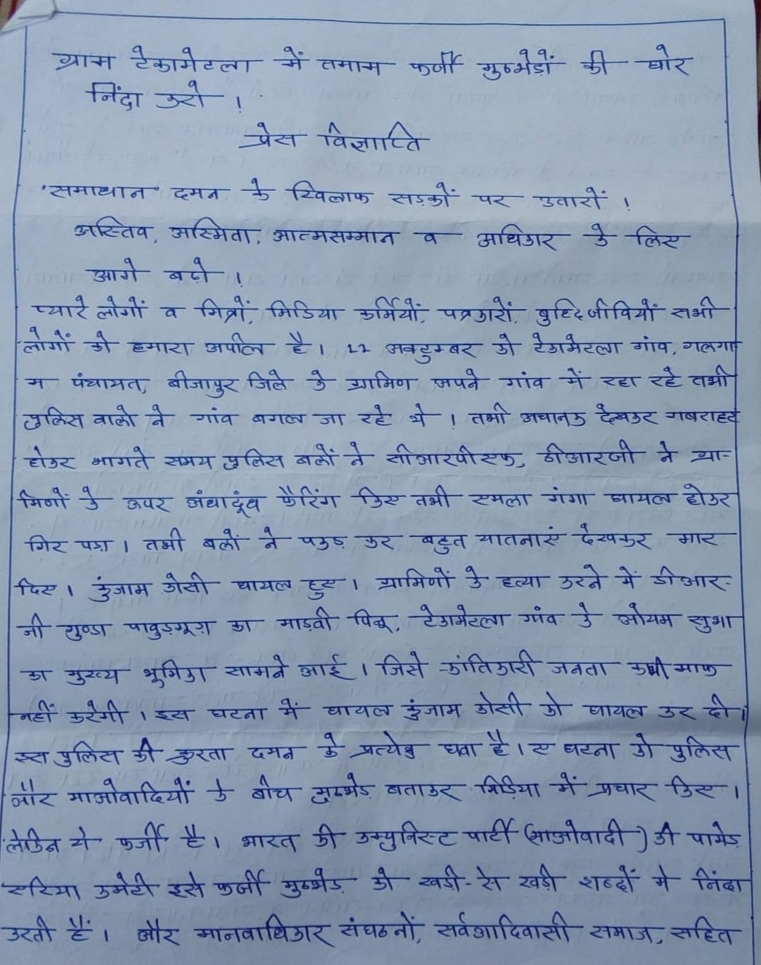 ग्राम टेकामेटला में तमाम फर्जी मुठभेड़ों की घोर
निंदा करो ।
प्रेस विज्ञाप्ति
"समाधान" दमन के खिलाफ सड़कों पर उतारों ।
अस्तिव, अस्मिता, आत्मसम्मान व अधिकार के लिए
आगे बढ़ो ।
प्यारे लोगों व मित्रों, मिडिया कर्मियों, पत्रकारों, बुध्दिजीवियों सभी
लोगों को हमारा अपील है । 22 अक्टुम्बर को टेकामेटला गांव, गलगा
म पंचायत, बीजापुर जिले के ग्रामिण अपने गांव में रहा रहे तभी
पुलिस वालो ने गांव बगल जा रहे थे । तभी अचानक देखकर गबराहट
होकर भागते समय पुलिस बलों ने सीआरपीएफ, डीआरजी ने ग्रा-
मिणों के ऊपर अंधादूंध फैरिंग किए तभी एमला गंगा घायल होकर
गिर पडा । तभी बलों ने पकड़ कर बहुत यातनाएं देखकर मार
दिए । कुंजाम कोसी घायल हुए । ग्रामिणों के हत्या करने में डीआर-
जी गुण्डा का माड़वी विच्चू, टेकामेटला गांव के ओयम सुभा
का मुख्य भुमिका सामने आई । जिसे क्रांतिकारी जनता कभी माफ
नहीं करेगी । इस घटना में घायल कुंजाम कोसी को घायल कर दी ।
इस पुलिस की क्रुरता दमन के है । ए घटना को पुलिस
और माओवादियों के बीच मुठभेड बताकर मिडिया में प्रचार किए ।
लेकिन ये फर्जी है । भारत की कम्युनिस्ट पार्टी (माओवादी) की पामेड
एरिया कमेटी इसे फर्जी मुठभेड़ को खडी-से खडी शब्दों मे निंदा
करती हैं । और मानवाधिकार संघठनों, सर्वआदिवासी समाज, सहित